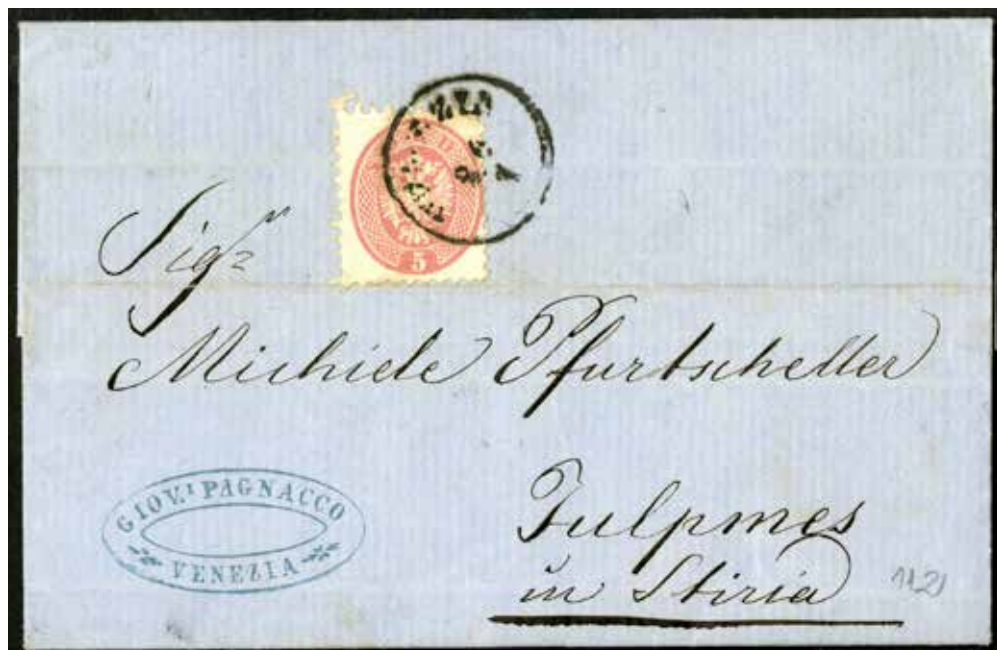 VENEZIA
5
Sigr
Michiele Pfurtscheller
Fulpmes
in Stiria
GIOV.I PAGNACCO
VENEZIA